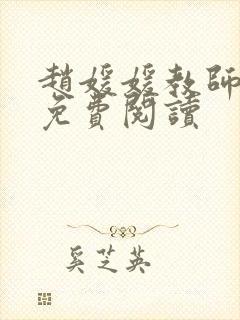 趙媛媛教師
免費閱讀
奚芝英